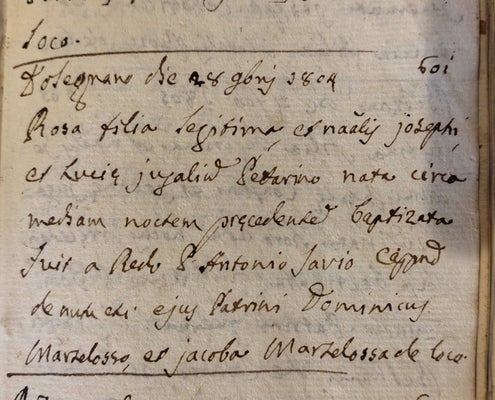 loco.
Dolegnano die 28 9bris 1804 601
Rosa filia legitima, et nãalis josephi
et Lucię jugaliũ Pettarino nata circa
mediam noctem pręcedentẽ baptizata
fuit a Rедo P. Antonio Savio
de nutu etc ejus Patrini Dominicus
Marzelosso, et jacoba Marzelossa de loco.